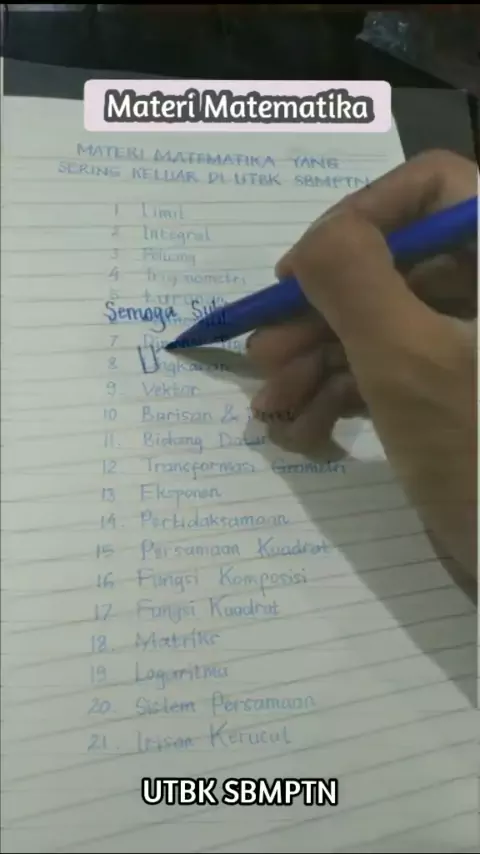 Materi Matematika
MATERI MATEMATIKA YANG
SERING KELUAR DI UTBK SBMPTN
1 Limit
2 Integral
3 Peluang
4 Trigonometri
5
Semoga
7
8
9. Vektor
10 Barisan &
11. Bidang Datar
12 Transformasi Geometri
13 Eksponen
14. Pertidaksamaan
15 Persamaan Kuadrat
16 Fungsi Komposisi
17 Fungsi Kuadrat
18. Matriks
19 Logaritma
20. Sistem Persamaan
21. Irisan Kerucut
UTBK SBMPTN